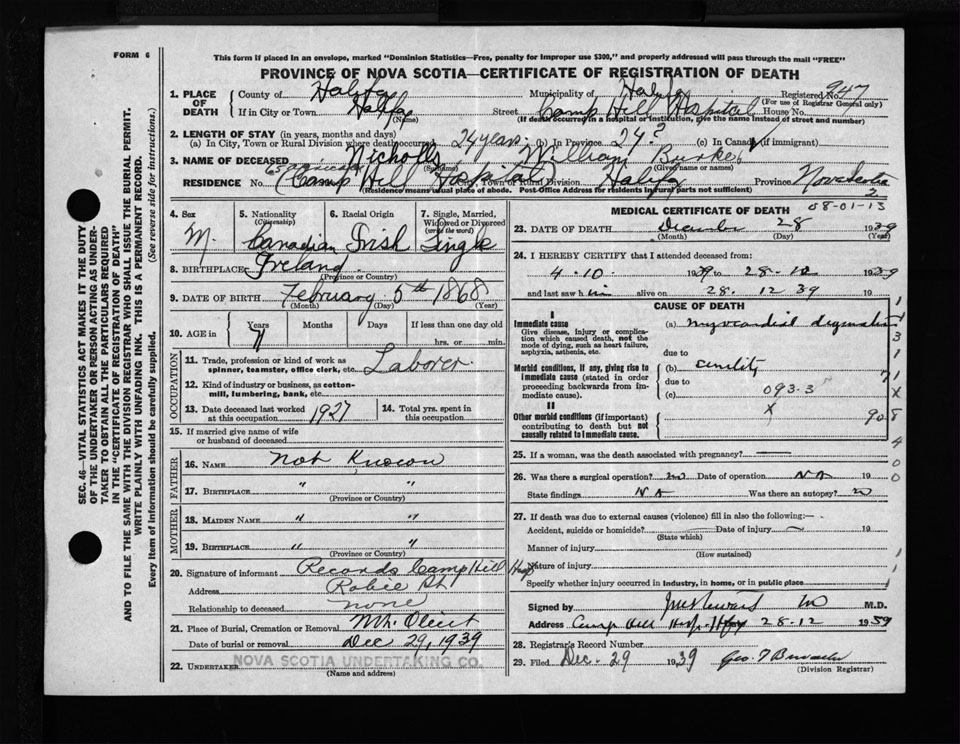 FORM 6
This form if placed in an envelope, marked "Dominion Statistics—Free, penalty for improper use $300," and properly addressed will pass through the mail "FREE"
PROVINCE OF NOVA SCOTIA—CERTIFICATE OF REGISTRATION OF DEATH
SEC. 46—VITAL STATISTICS ACT MAKES IT THE DUTY
OF THE UNDERTAKER OR PERSON ACTING AS UNDER-
TAKER TO OBTAIN ALL THE PARTICULARS REQUIRED
IN THE "CERTIFICATE OF REGISTRATION OF DEATH"
AND TO FILE THE SAME WITH THE DIVISION REGISTRAR WHO SHALL ISSUE THE BURIAL PERMIT.
WRITE PLAINLY WITH UNFADING INK. THIS IS A PERMANENT RECORD.
Every item of information should be carefully supplied. (See reverse side for instructions.)
1. PLACE OF DEATH County of Halifax Municipality of Registered No. 947
(For use of Registrar General only)
If in City or Town Halifax (Name) Street Camp Hill Hospital House No.
(If death occurred in a hospital or institution, give the name instead of street and number)
2. LENGTH OF STAY (in years, months and days)
(a) In City, Town or Rural Division where death occurred 24 years (b) In Province 24? (c) In Canada (if immigrant)
3. NAME OF DECEASED Nicholls William Burke
(Surname) (Given name or names)
RESIDENCE No. (Camp Hill Hospital) City, Town or Rural Division Halifax Province Nova Scotia
(Residence means usual place of abode. Post-Office Address for residents in rural parts not sufficient)
2
08-01-13
4. Sex M.
5. Nationality (Citizenship) Canadian
6. Racial Origin Irish
7. Single, Married, Widowed or Divorced (write the word) Single
8. BIRTHPLACE Ireland
(Province or Country)
9. DATE OF BIRTH February 5th 1868
(Month) (Day) (Year)
10. AGE in Years Months Days If less than one day old
71 hrs. or min.
OCCUPATION
11. Trade, profession or kind of work as spinner, teamster, office clerk, etc. Laborer
12. Kind of industry or business, as cotton-mill, lumbering, bank, etc.
13. Date deceased last worked at this occupation 1927
14. Total yrs. spent in this occupation
15. If married give name of wife or husband of deceased
FATHER
16. NAME Not Known
17. BIRTHPLACE " "
(Province or Country)
MOTHER
18. MAIDEN NAME " "
19. BIRTHPLACE " "
(Province or Country)
20. Signature of informant Records Camp Hill Hosp
Address Robie St
Relationship to deceased none
21. Place of Burial, Cremation or Removal Mt. Olivet
Date of burial or removal Dec 29, 1939
22. UNDERTAKER NOVA SCOTIA UNDERTAKING CO.
(Name and address)
MEDICAL CERTIFICATE OF DEATH
23. DATE OF DEATH December 28 1939
(Month) (Day) (Year)
24. I HEREBY CERTIFY that I attended deceased from:
4.10. 1939 to 28.12 1939
and last saw him alive on 28. 12 39 19
CAUSE OF DEATH
I
Immediate cause
Give disease, injury or complication which caused death, not the mode of dying, such as heart failure, asphyxia, asthenia, etc.
(a) myocardial
due to
Morbid conditions, if any, giving rise to immediate cause (stated in order proceeding backwards from immediate cause).
(b) senility
due to
(c) 093.3
X
II
Other morbid conditions (important) contributing to death but not causally related to immediate cause.
908
25. If a woman, was the death associated with pregnancy?
26. Was there a surgical operation? no Date of operation NA 19
State findings NA Was there an autopsy? no
27. If death was due to external causes (violence) fill in also the following:—
Accident, suicide or homicide? Date of injury 19
(State which)
Manner of injury
(How sustained)
Nature of injury
Specify whether injury occurred in industry, in home, or in public place
Signed by M.D.
Address Camp Hill Hosp. Hfx 28-12 1939
28. Registrar's Record Number
29. Filed Dec. 29 1939 Geo. T
(Division Registrar)